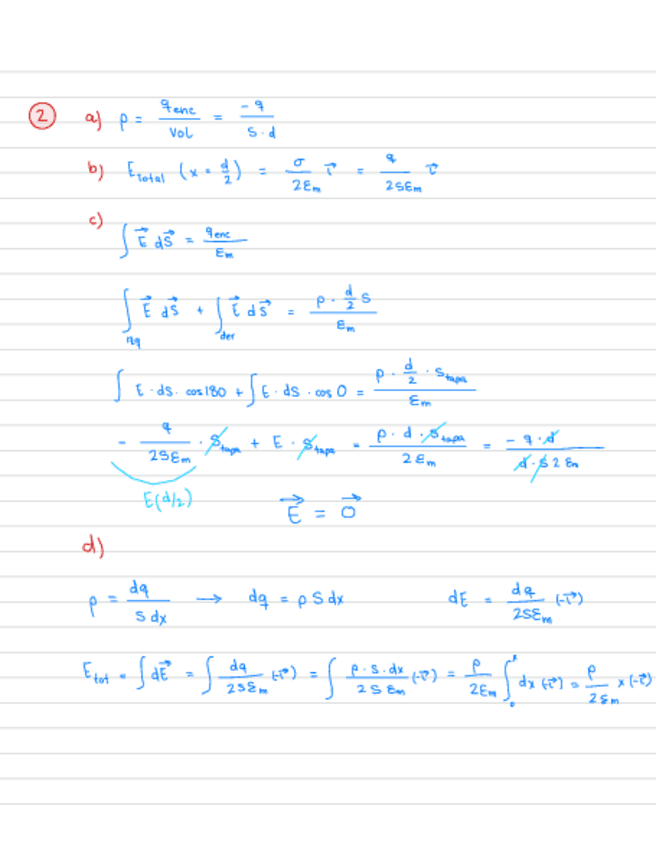 ② a) ρ = q_enc / Vol = -q / S·d
b) E_Total (x = d/2) = σ / 2ε_m i⃗ = q / 2Sε_m i⃗
c)
∫ E⃗ dS⃗ = q_enc / ε_m
∫_izq E⃗ dS⃗ + ∫_der E⃗ dS⃗ = ρ · d/2 S / ε_m
∫ E · dS · cos 180 + ∫ E · dS · cos 0 = ρ · d/2 · S_tapa / ε_m
- q / 2Sε_m · S_tapa + E · S_tapa = ρ · d · S_tapa / 2ε_m = - q · d / d · S 2 ε_m
E(d/2)
E⃗ = 0⃗
d)
ρ = dq / S dx → dq = ρ S dx dE = dq / 2Sε_m (-i⃗)
E_tot = ∫ dE⃗ = ∫ dq / 2Sε_m (-i⃗) = ∫ ρ · S · dx / 2 S ε_m (-i⃗) = ρ / 2ε_m ∫_0^x dx (-i⃗) = ρ / 2ε_m x (-i⃗)